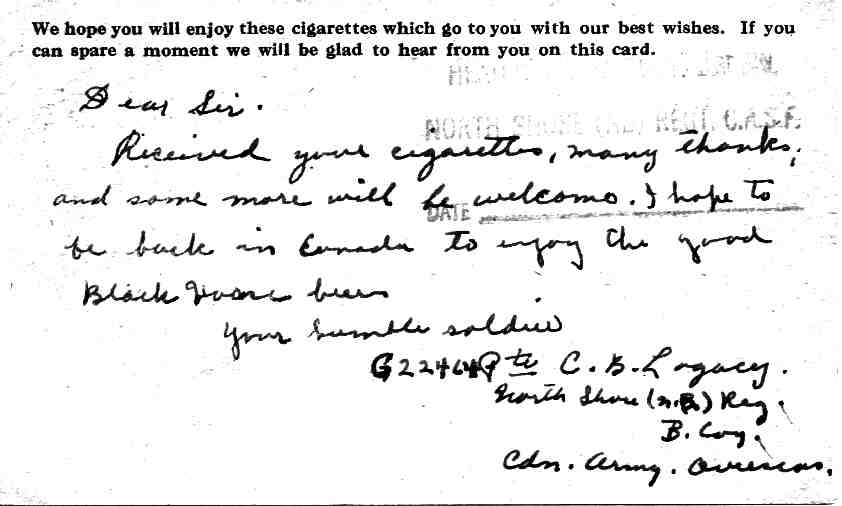 We hope you will enjoy these cigarettes which go to you with our best wishes. If you
can spare a moment we will be glad to hear from you on this card.
Dear Sir.
NORTH SHORE (NB) REGT. C.A.S.F.
Received your cigarettes, many thanks,
and some more will be welcome. I hope to
DATE
be back in Canada to enjoy the good
Black Horse beer
your humble soldier
G22464 Pte C. B. Legacy.
North Shore (N.B.) Reg.
B. Coy.
Cdn. Army. Overseas.